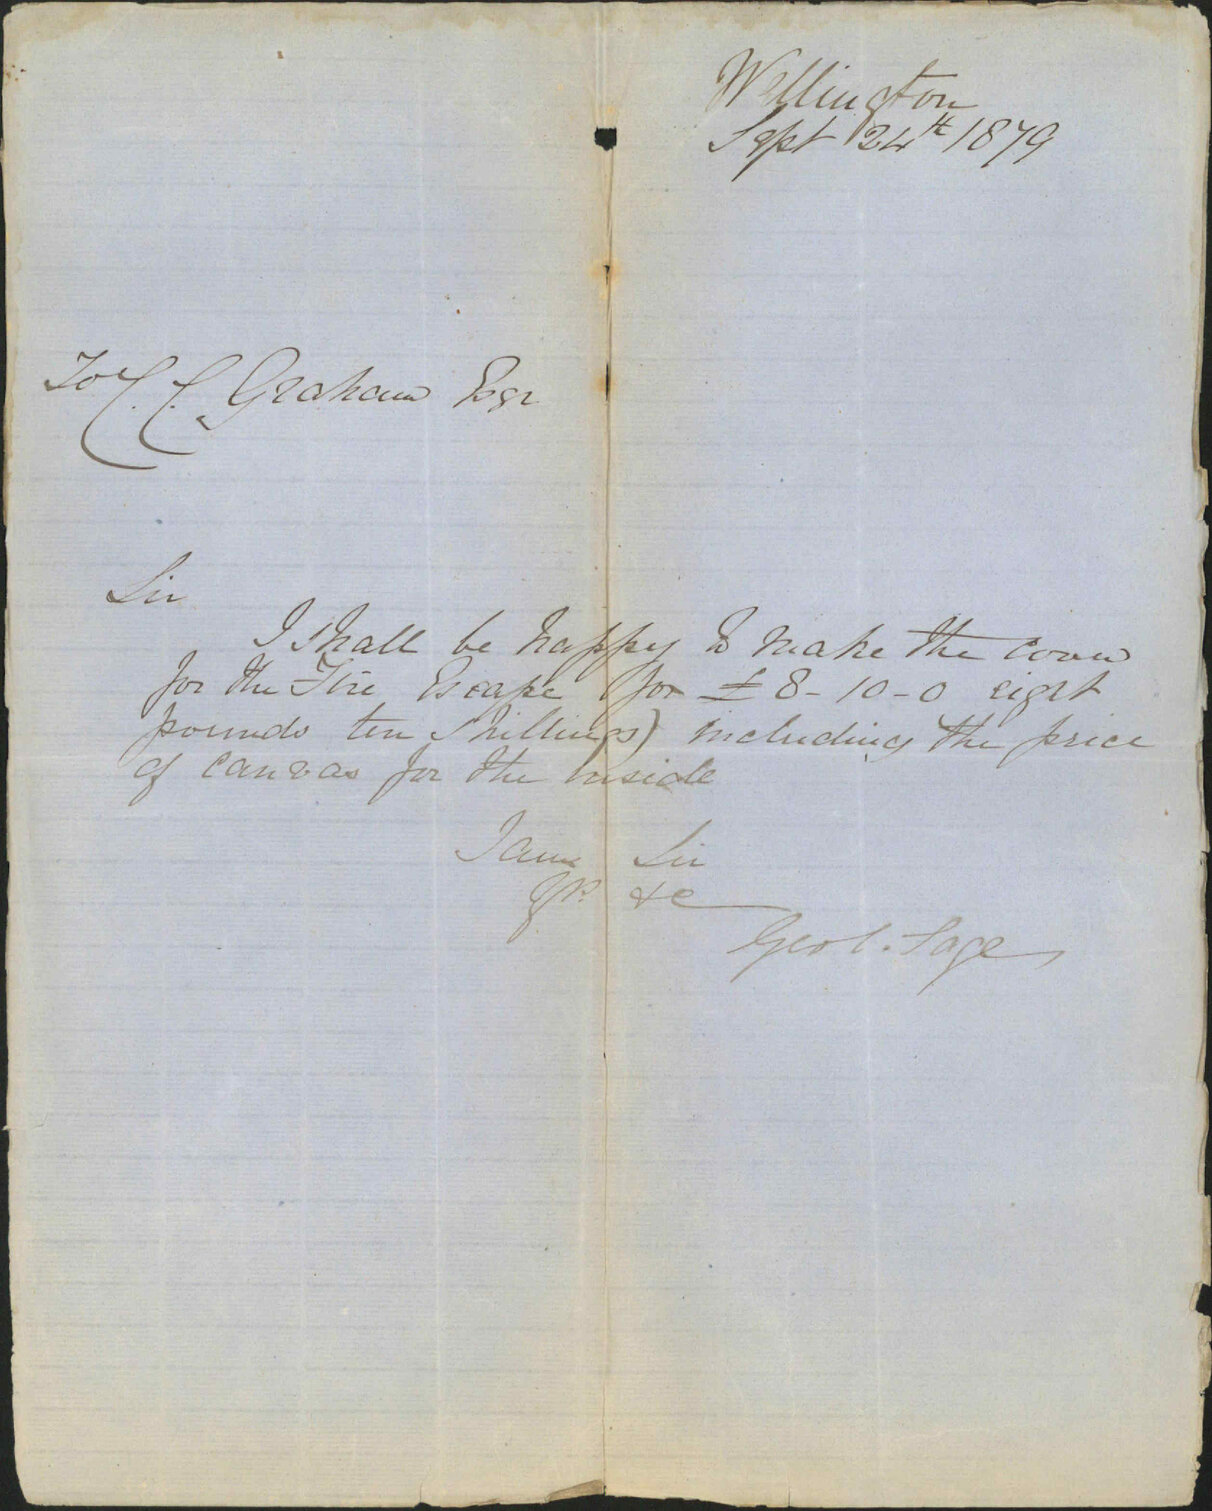 Wellington
Sept 24th 1879
To C. C. Graham Esqr
Sir
I shall be happy to make the cover
for the Fire Escape for £8-10-0 eight
pounds ten shillings) including the price
of canvas for the inside
I am Sir
Yr. &c
Geo C. Sage